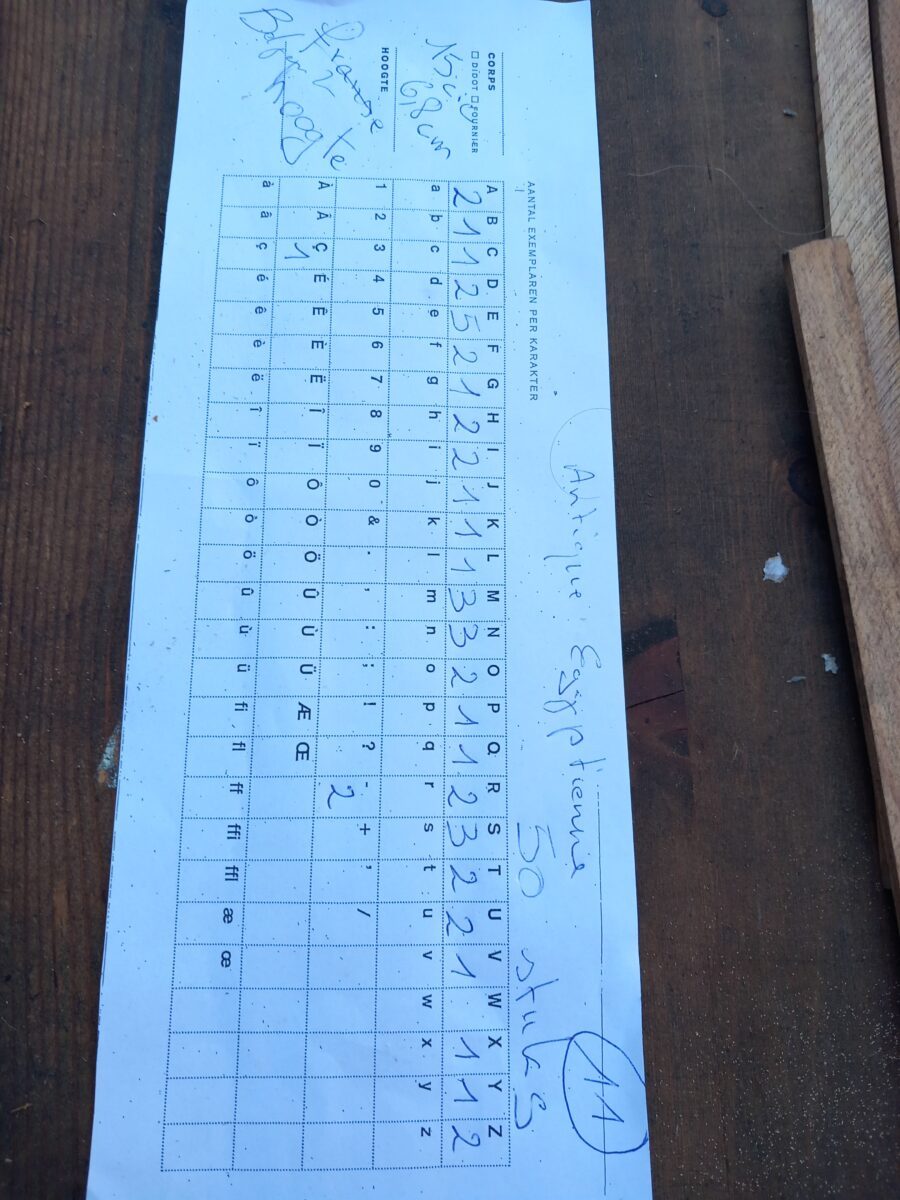 11
Antique: Egyptienne
50 stuks
AANTAL EXEMPLAREN PER KARAKTER
CORPS
DIDOT FOURNIER
6,8 cm
HOOGTE
Franse
A B C D E F G H I J K L M N O P Q R S T U V W X Y Z
2 1 1 2 5 2 1 2 2 1 1 1 3 3 2 1 1 2 3 2 2 1 1 1 2
a b c d e f g h i j k l m n o p q r s t u v w x y z
1 2 3 4 5 6 7 8 9 0 & . , : ; ! ? - + ' /
2
À Â Ç É Ê È Ë Î Ï Ô Ò Ö Û Ù Ü Æ Œ
1
à â ç é ê è ë î ï ô ò ö û ù ü fi fl ff ffi ffl æ œ